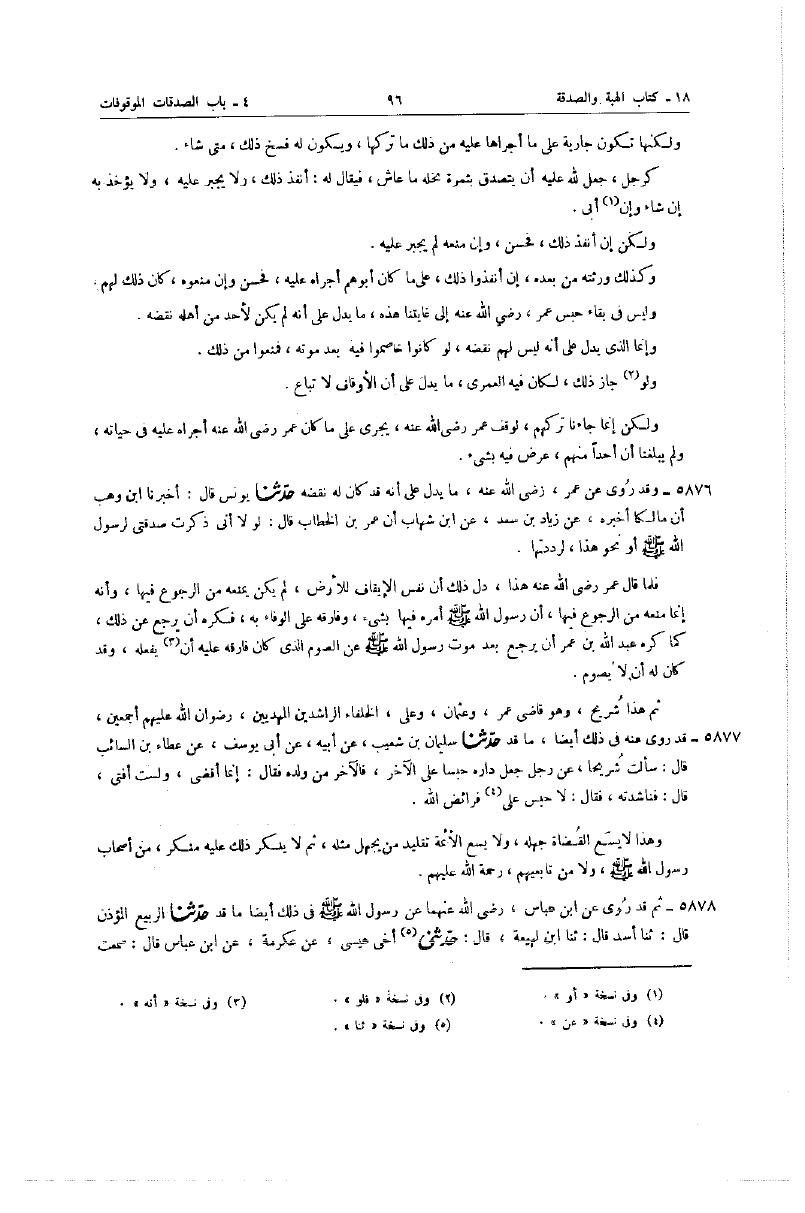 ١٨ - كتاب الهبة والصدقة ٩٦ ٤ - باب الصدقات الموقوفات
ولكنها تكون جارية على ما أجراها عليه من ذلك ما تركها ، ويكون له فسخ ذلك ، متى شاء .
كرجل ، جعل لله عليه أن يتصدق بثمرة نخله ما عاش ، فيقال له : أنفذ ذلك ، ولا يجبر عليه ، ولا يؤخذ به
إن شاء وإن(١) أبى .
ولكن إن أنفذ ذلك ، فحسن ، وإن منعه لم يجبر عليه .
وكذلك ورثته من بعده ، إن أنفذوا ذلك ، على ما كان أبوهم أجراه عليه ، فحسن وإن منعوه ، كان ذلك لهم .
وليس فى بقاء حبس عمر ، رضي الله عنه إلى غايتنا هذه ، ما يدل على أنه لم يكن لأحد من أهله نقضه .
وإنما الذى يدل على أنه ليس لهم نقضه ، لو كانوا خاصموا فيه بعد موته ، فمنعوا من ذلك .
ولو(٢) جاز ذلك ، لكان فيه العمرى ، ما يدل على أن الأوقاف لا تباع .
ولكن إنما جاءنا تركهم ، لوقف عمر رضى الله عنه ، يجرى على ما كان عمر رضى الله عنه أجراه عليه فى حياته ،
ولم يبلغنا أن أحداً منهم ، عرض فيه بشىء .
٥٨٧٦ - وقد رُوى عن عمر ، رضى الله عنه ، ما يدل على أنه قد كان له نقضه حدثنا يونس قال : أخبرنا ابن وهب
أن مالكا أخبره ، عن زياد بن سعد ، عن ابن شهاب أن عمر بن الخطاب قال : لو لا أنى ذكرت صدقتى لرسول
الله ﷺ أو نحو هذا ، لرددتها .
فلما قال عمر رضى الله عنه هذا ، دل ذلك أن نفس الإيقاف للأرض ، لم يكن يمنعه من الرجوع فيها ، وأنه
إنما منعه من الرجوع فيها ، أن رسول الله ﷺ أمره فيها بشىء ، وفارقه على الوفاء به ، فكره أن يرجع عن ذلك ،
كما كره عبد الله بن عمر أن يرجع بعد موت رسول الله ﷺ عن الصوم الذى كان فارقه عليه أن(٣) يفعله ، وقد
كان له أن لا يصوم .
ثم هذا شُريح ، وهو قاضى عمر ، وعثمان ، وعلى ، الخلفاء الراشدين المهديين ، رضوان الله عليهم أجمعين ،
٥٨٧٧ - قد روى عنه فى ذلك أيضا ، ما قد حدثنا سليمان بن شعيب ، عن أبيه ، عن أبى يوسف ، عن عطاء بن السائب
قال : سألت شُريحا ، عن رجل جعل داره حبسا على الآخر ، فالآخر من ولده فقال : إنما أقضى ، ولست أفتى ،
قال : فناشدته ، فقال : لا حبس على(٤) فرائض الله .
وهذا لا يسَع القُضاة جهله ، ولا يسع الأئمة تقليد من يجهل مثله ، ثم لا ينكر ذلك عليه منكر ، من أصحاب
رسول الله ﷺ ، ولا من تابعيهم ، رحمة الله عليهم .
٥٨٧٨ - ثم قد رُوى عن ابن عباس ، رضى الله عنهما عن رسول الله ﷺ فى ذلك أيضا ما قد حدثنا الربيع المؤذن
قال : ثنا أسد قال : ثنا ابن لهيعة ، قال : حدثنى(٥) أخى عيسى ، عن عكرمة ، عن ابن عباس قال : سمعت
(١) وفى نسخة « أو » . (٢) وفى نسخة « فلو » . (٣) وفى نسخة « أنه » .
(٤) وفى نسخة « عن » . (٥) وفى نسخة « ثنا » .